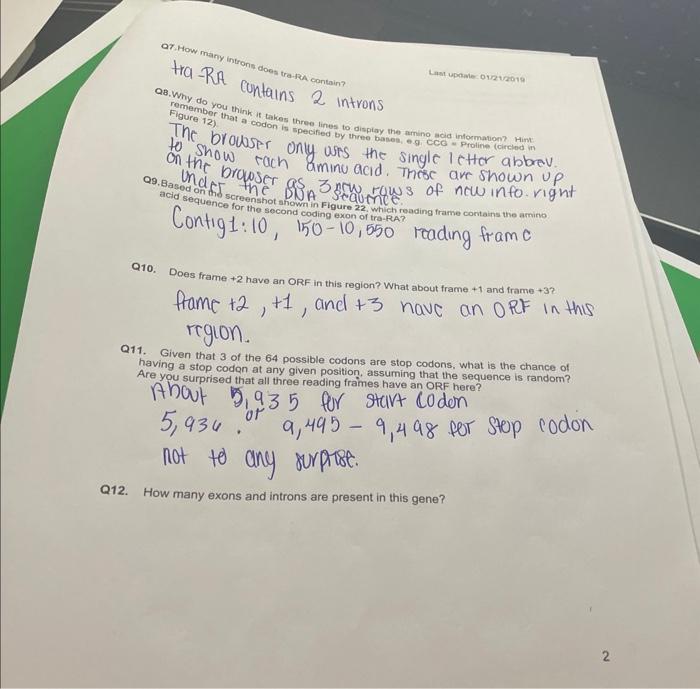 Last update: 01/21/2019
Q7. How many introns does tra-RA contain?
tra-RA contains 2 introns
Q8. Why do you think it takes three lines to display the amino acid information? Hint:
remember that a codon is specified by three bases, e.g. CCG = Proline (circled in
Figure 12).
The browser only uses the single letter abbrev.
to show each amino acid. These are shown up
on the browser as 3 new rows of new info. right
under the DNA sequence.
Q9. Based on the screenshot shown in Figure 22, which reading frame contains the amino
acid sequence for the second coding exon of tra-RA?
Contig1:10, 150-10,550 reading frame
Q10. Does frame +2 have an ORF in this region? What about frame +1 and frame +3?
frame +2, +1, and +3 have an ORF in this
region.
Q11. Given that 3 of the 64 possible codons are stop codons, what is the chance of
having a stop codon at any given position, assuming that the sequence is random?
Are you surprised that all three reading frames have an ORF here?
About 5,935 for start codon
5,936. or 9,495 - 9,498 for stop codon
not to any surprise.
Q12. How many exons and introns are present in this gene?
2